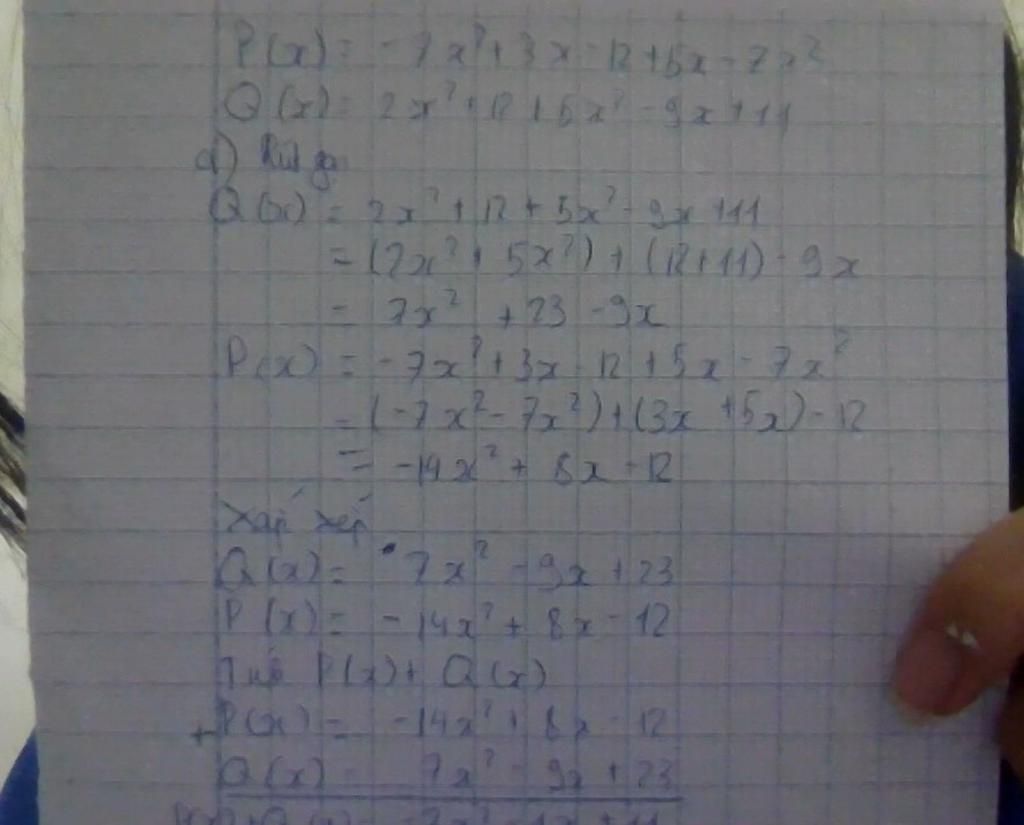 P(x) = -7x² + 3x - 12 + 5x - 7x²
Q(x) = 2x² + 12 + 5x² - 9x + 11
a) Rút gọ
Q(x) = 2x² + 12 + 5x² - 9x + 11
= (2x² + 5x²) + (12+11) - 9x
= 7x² + 23 - 9x
P(x) = -7x² + 3x - 12 + 5x - 7x²
= (-7x² - 7x²) + (3x + 5x) - 12
= -14x² + 8x - 12
Xắp xếp
Q(x) = 7x² - 9x + 23
P(x) = -14x² + 8x - 12
P(x) + Q(x)
+ P(x) = -14x² + 8x - 12
Q(x) = 7x² - 9x + 23
P(x)+Q(x) = -7x² - 1x + 11